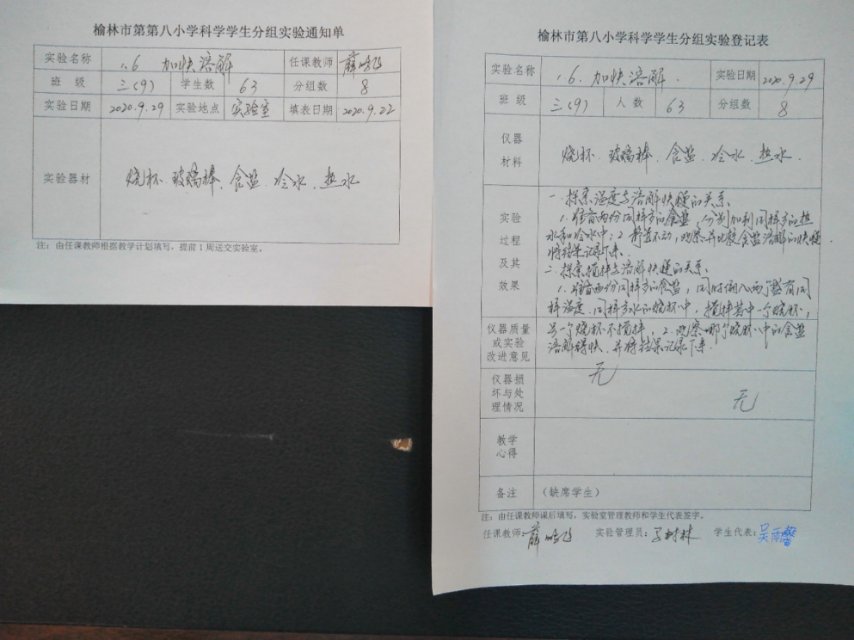 榆林市第第八小学科学学生分组实验通知单
实验名称 1.6 加快溶解 任课教师
班 级 三(9) 学生数 63 分组数 8
实验日期 2020.9.29 实验地点 实验室 填表日期 2020.9.22
实验器材 烧杯 玻璃棒 食盐 冷水 热水
注:由任课教师根据教学计划填写,提前1周送交实验室。
榆林市第八小学科学学生分组实验登记表
实验名称 1.6. 加快溶解. 实验日期 2020.9.29
班 级 三(9) 人 数 63 分组数 8
仪器
材料
烧杯 玻璃棒 食盐 冷水 热水.
实验
过程
及其
效果
一、探索温度与溶解快慢的关系
1.准备两份同样多的食盐,分别加到同样多的热
水和冷水中;2.静置不动,观察并比较食盐溶解的快慢
将结果记录下来.
二、探索搅拌与溶解快慢的关系.
1.准备两份同样多的食盐,同时倒入两个盛有同
样温度、同样多水的烧杯中,搅拌其中一个烧杯,
另一个烧杯不搅拌;2.观察哪个烧杯中的食盐
溶解得快,并将结果记录下来.
仪器质量
或实验
改进意见
无
仪器损
坏与处
理情况
无
教学
心得
备注 (缺席学生)
注:由任课教师课后填写,实验室管理教师和学生代表签字。
任课教师: 实验管理员: 学生代表: